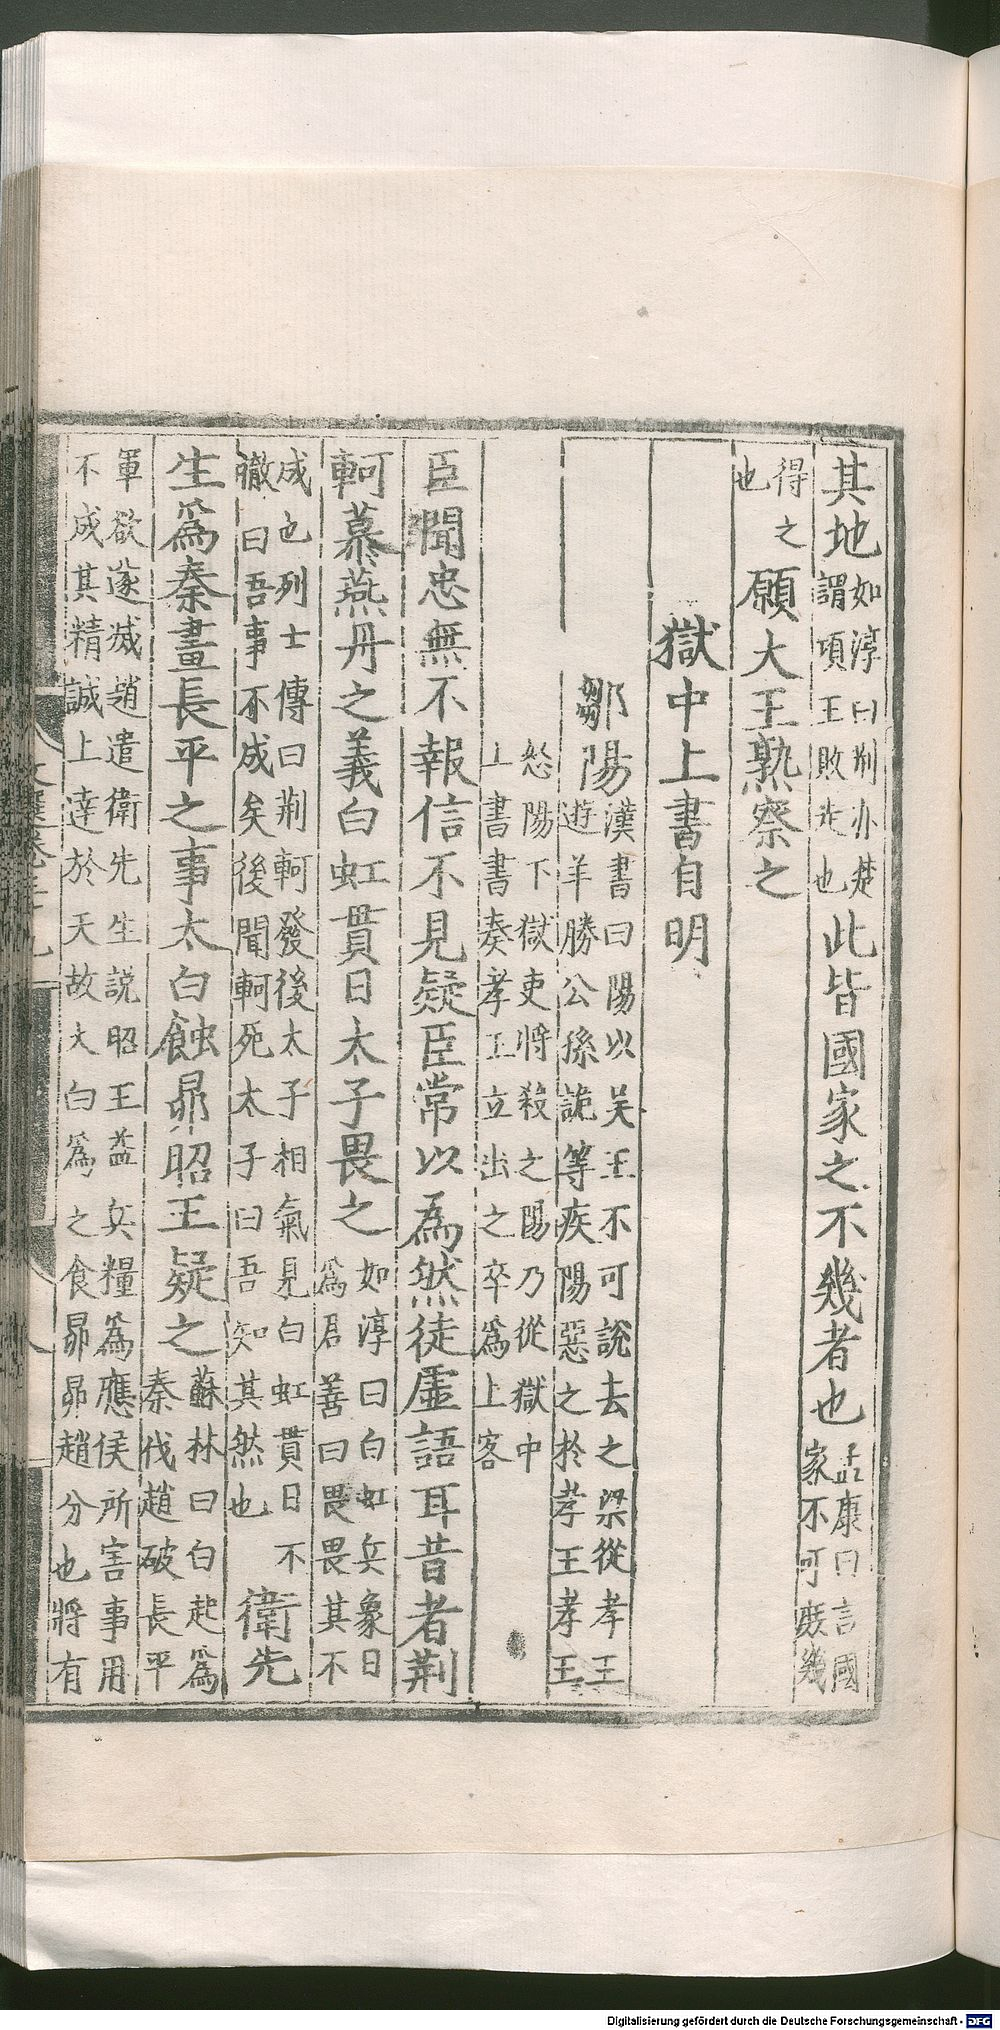 其地如淳曰荆亦楚謂項王敗走也此皆國家之不幾者也孟康曰言國家不可庶幾
得之也願大王熟察之
獄中上書自明
鄒陽漢書曰陽以吳王不可說去之梁從孝王遊羊勝公孫詭等疾陽惡之於孝王孝王
怒陽下獄吏將殺之陽乃從獄中上書書奏孝王立出之卒爲上客
臣聞忠無不報信不見疑臣常以爲然徒虛語耳昔者荆
軻慕燕丹之義白虹貫日太子畏之如淳曰白虹兵象日爲君善曰畏畏其不
成也列士傳曰荆軻發後太子相氣見白虹貫日不徹曰吾事不成矣後聞軻死太子曰吾知其然也衛先
生爲秦畫長平之事太白蝕昴昭王疑之蘇林曰白起爲秦伐趙破長平
軍欲遂滅趙遣衛先生說昭王益兵糧爲應侯所害事用不成其精誠上達於天故太白爲之食昴昴趙分也將有
Digitalisierung gefördert durch die Deutsche Forschungsgemeinschaft - DFG